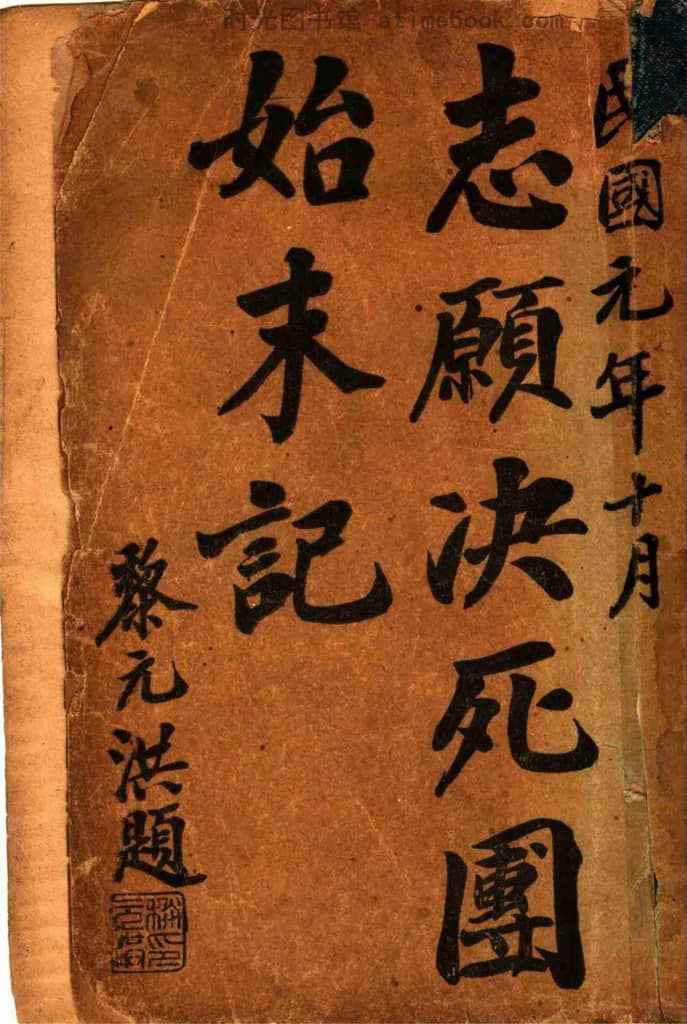 民國元年十月
志願決死團
始末記
黎元洪題
时光图书馆 atimebook.com